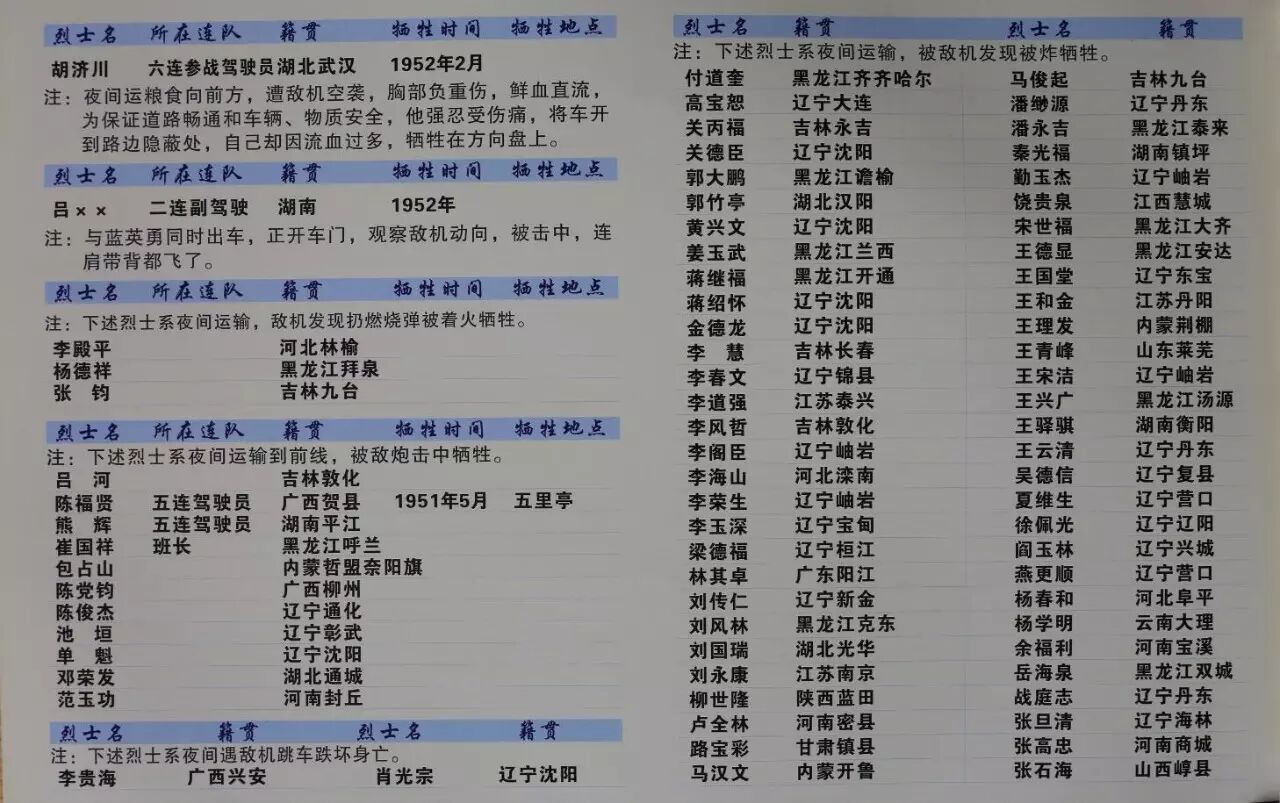 烈士名 所在连队 籍贯 牺牲时间 牺牲地点
胡济川 六连参战驾驶员 湖北武汉 1952年2月
注：夜间运粮食向前方，遭敌机空袭，胸部负重伤，鲜血直流，
为保证道路畅通和车辆、物质安全，他强忍受伤痛，将车开
到路边隐蔽处，自己却因流血过多，牺牲在方向盘上。
烈士名 所在连队 籍贯 牺牲时间 牺牲地点
吕×× 二连副驾驶 湖南 1952年
注：与蓝英勇同时出车，正开车门，观察敌机动向，被击中，连
肩带背都飞了。
烈士名 所在连队 籍贯 牺牲时间 牺牲地点
注：下述烈士系夜间运输，敌机发现扔燃烧弹被着火牺牲。
李殿平 河北林榆
杨德祥 黑龙江拜泉
张 钧 吉林九台
烈士名 所在连队 籍贯 牺牲时间 牺牲地点
注：下述烈士系夜间运输到前线，被敌炮击中牺牲。
吕 河 吉林敦化
陈福贤 五连驾驶员 广西贺县 1951年5月 五里亭
熊 辉 五连驾驶员 湖南平江
崔国祥 班长 黑龙江呼兰
包占山 内蒙哲盟奈阳旗
陈党钧 广西柳州
陈俊杰 辽宁通化
池 垣 辽宁彰武
单 魁 辽宁沈阳
邓荣发 湖北通城
范玉功 河南封丘
烈士名 籍贯 烈士名 籍贯
注：下述烈士系夜间遇敌机跳车跌坏身亡。
李贵海 广西兴安 肖光宗 辽宁沈阳
烈士名 籍贯 烈士名 籍贯
注：下述烈士系夜间运输，被敌机发现被炸牺牲。
付道奎 黑龙江齐齐哈尔 马俊起 吉林九台
高宝恕 辽宁大连 潘缈源 辽宁丹东
关丙福 吉林永吉 潘永吉 黑龙江泰来
关德臣 辽宁沈阳 秦光福 湖南镇坪
郭大鹏 黑龙江谵榆 勤玉杰 辽宁岫岩
郭竹亭 湖北汉阳 饶贵泉 江西慧城
黄兴文 辽宁沈阳 宋世福 黑龙江大齐
姜玉武 黑龙江兰西 王德显 黑龙江安达
蒋继福 黑龙江开通 王国堂 辽宁东宝
蒋绍怀 辽宁沈阳 王和金 江苏丹阳
金德龙 辽宁沈阳 王理发 内蒙荆棚
李 慧 吉林长春 王青峰 山东莱芜
李春文 辽宁锦县 王宋洁 辽宁岫岩
李道强 江苏泰兴 王兴广 黑龙江汤源
李风哲 吉林敦化 王驿骐 湖南衡阳
李阁臣 辽宁岫岩 王云清 辽宁丹东
李海山 河北滦南 吴德信 辽宁复县
李荣生 辽宁岫岩 夏维生 辽宁营口
李玉深 辽宁宝甸 徐佩光 辽宁辽阳
梁德福 辽宁桓江 阎玉林 辽宁兴城
林其卓 广东阳江 燕更顺 辽宁营口
刘传仁 辽宁新金 杨春和 河北阜平
刘风林 黑龙江克东 杨学明 云南大理
刘国瑞 湖北光华 余福利 河南宝溪
刘永康 江苏南京 岳海泉 黑龙江双城
柳世隆 陕西蓝田 战庭志 辽宁丹东
卢全林 河南密县 张旦清 辽宁海林
路宝彩 甘肃镇县 张高忠 河南商城
马汉文 内蒙开鲁 张石海 山西崞县